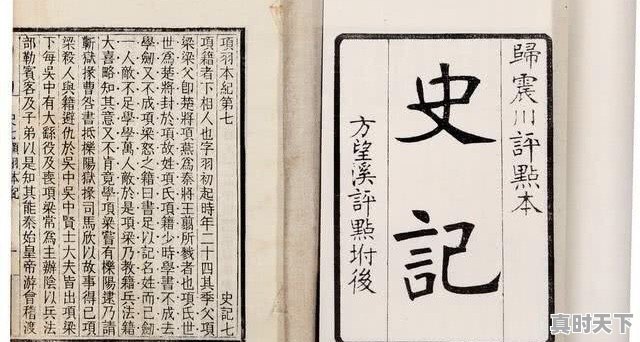 歸震川評點本
史記
方望溪評點坿後
項羽本紀第七 史記七
項籍者下相人也字羽初起時年二十四其季父項
梁梁父卽楚將項燕爲秦將王翦所戮者也項氏世
世爲楚將封於項故姓項氏項籍少時學書不成去
學劒又不成項梁怒之籍曰書足以記名姓而已劒
一人敵不足學學萬人敵於是項梁乃教籍兵法籍
大喜略知其意又不肯竟學項梁嘗有櫟陽逮乃請
蘄獄掾曹咎書抵櫟陽獄掾司馬欣以故事得已項
梁殺人與籍避仇於吳中吳中賢士大夫皆出項梁
下每吳中有大繇役及喪項梁常爲主辦陰以兵法
部勒賓客及子弟以是知其能秦始皇帝游會稽渡
真时天下